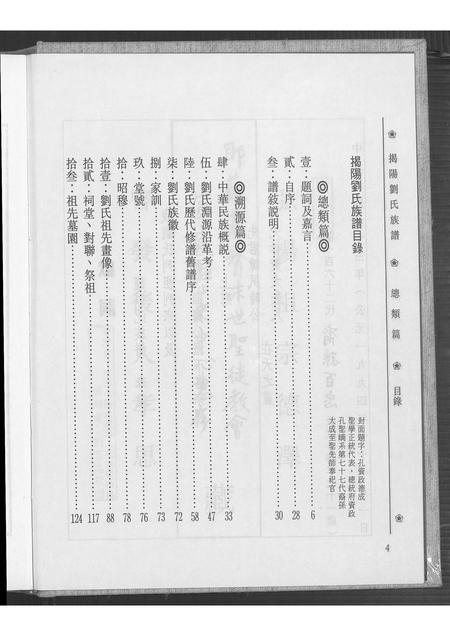 揭陽劉氏族譜 總類篇 目錄
揭陽劉氏族譜目錄
封面題字：孔資政德成
聖學正統代表，總統府資政
孔聖嫡系第七十七代裔孫
大成至聖先師奉祀官
◎總類篇◎
壹：題詞及嘉言 6
貳：自序 28
叁：譜敍說明 30
◎溯源篇◎
肆：中華民族概說 33
伍：劉氏淵源沿革考 47
陸：劉氏歷代修譜舊譜序 58
柒：劉氏族徽 72
捌：家訓 73
玖：堂號 76
拾：昭穆 78
拾壹：劉氏祖先畫像 88
拾貳：祠堂、對聯、祭祖 117
拾叁：祖先墓園 124
4